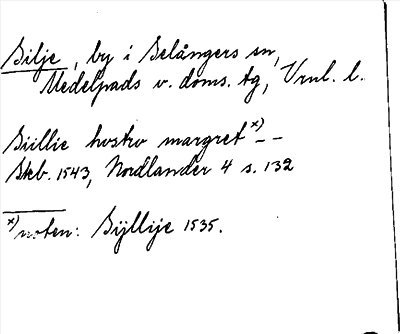 Silje, by i Selångers sn,
Medelpads v. doms. tg, Vrnl. l.
Siillie hostrv margret x) - -
Skb. 1543, Nordlander 4 s. 132
x) noten: Sÿllije 1535.